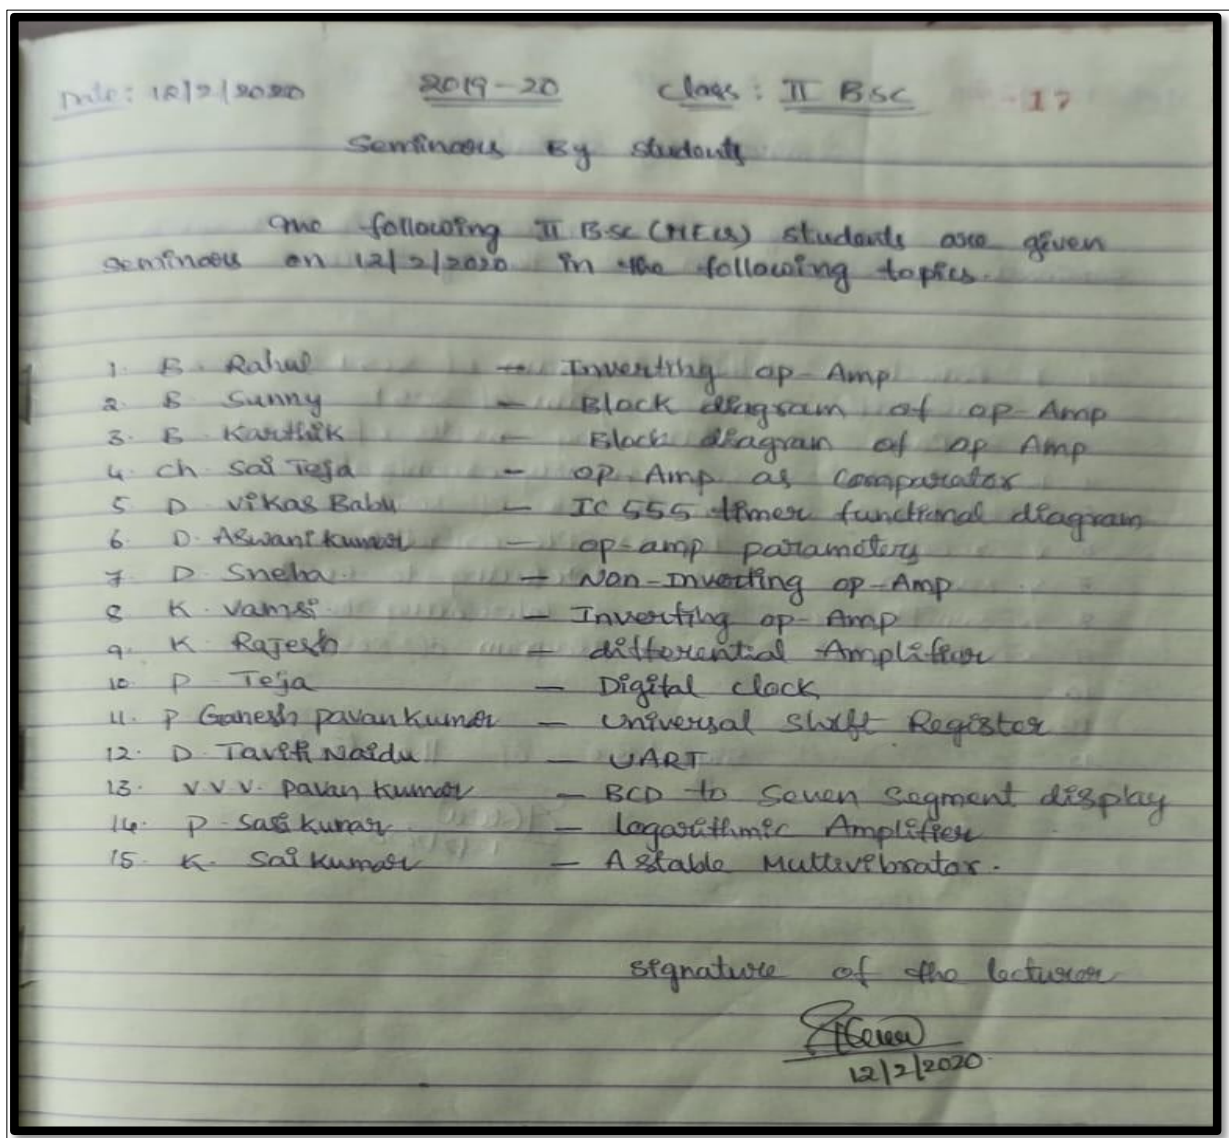 Date: 12/2/2020 2019-20 Class: II BSC 17
Seminars By students
The following II B.Sc (MECs) students are given
seminars on 12/2/2020 in the following topics.
1. B. Rahul - Inverting op-Amp
2. B Sunny - Block diagram of op-Amp
3. B Karthik - Block diagram of op Amp
4. Ch. Sai Teja - op-Amp as Comparator
5 D. Vikas Babu - IC 555 timer functional diagram
6. D. Aswani kumar - op-amp parameters
7. D. Sneha - Non-Inverting op-Amp
8 K. Vamsi - Inverting op-Amp
9. K Rajesh - differential Amplifier
10 P Teja - Digital clock
11. P Ganesh pavan kumar - Universal Shift Register
12. D. Taviti Naidu - UART
13. V.V.V. Pavan kumar - BCD to Seven Segment display
14. P. Sasi kumar - logarithmic Amplifier
15. K. Sai kumar - Astable Multivibrator.
signature of the lecturer
12/2/2020